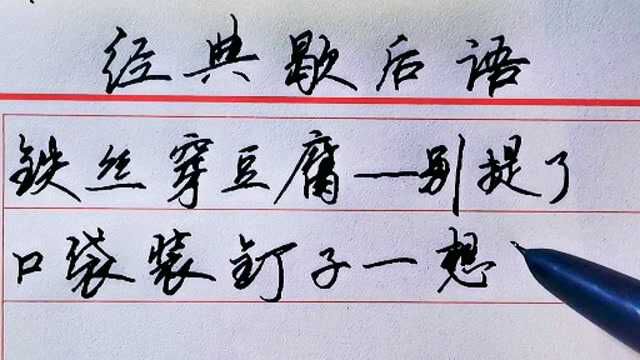 经典歇后语
铁丝穿豆腐——别提了
口袋装钉子一想